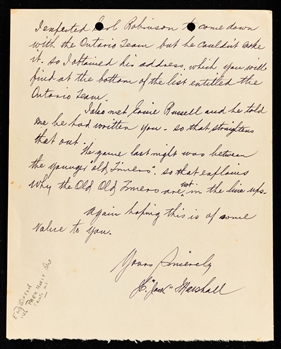 I expected Earl Robinson to come down
with the Ontario Team but he couldn't make
it. so I obtained his address, which you will
find at the bottom of the list entitled the
Ontario Team.
I also met Ernie Russell and he told
me he had written you. so that straightens
that out.
The game last night was between
the younger old timers. so that explains
why the Old Old Timers are not in the line ups.
Again hoping this is of some
value to you.
Yours Sincerely
"Jack" Marshall